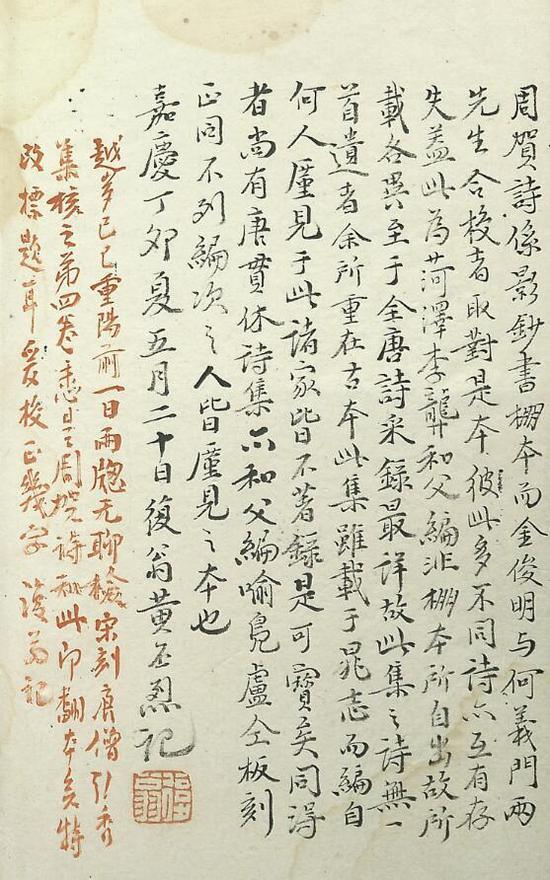 周賀詩係影鈔書棚本而金俊明与何義門兩
先生合校者取對是本彼此多不同詩亦互有存
失蓋此為菏澤李龏和父編非棚本所自出故所
載各異至于全唐詩采錄最詳故此集之詩無一
首遺者余所重在古本此集雖載于晁志而編自
何人厪見于此諸家皆不著錄是可寶矣同得
者尚有唐貫休詩集亦和父編喻鳧盧仝板刻
正同不列編次之人皆厪見之本也
嘉慶丁卯夏五月二十日復翁黃丕烈記
越歲己巳重陽前一日雨牕无聊檢宋刻唐僧弘秀
集核之第四卷悉是周賀詩和此即翻本矣特
改標題耳爰校正幾字 復翁記